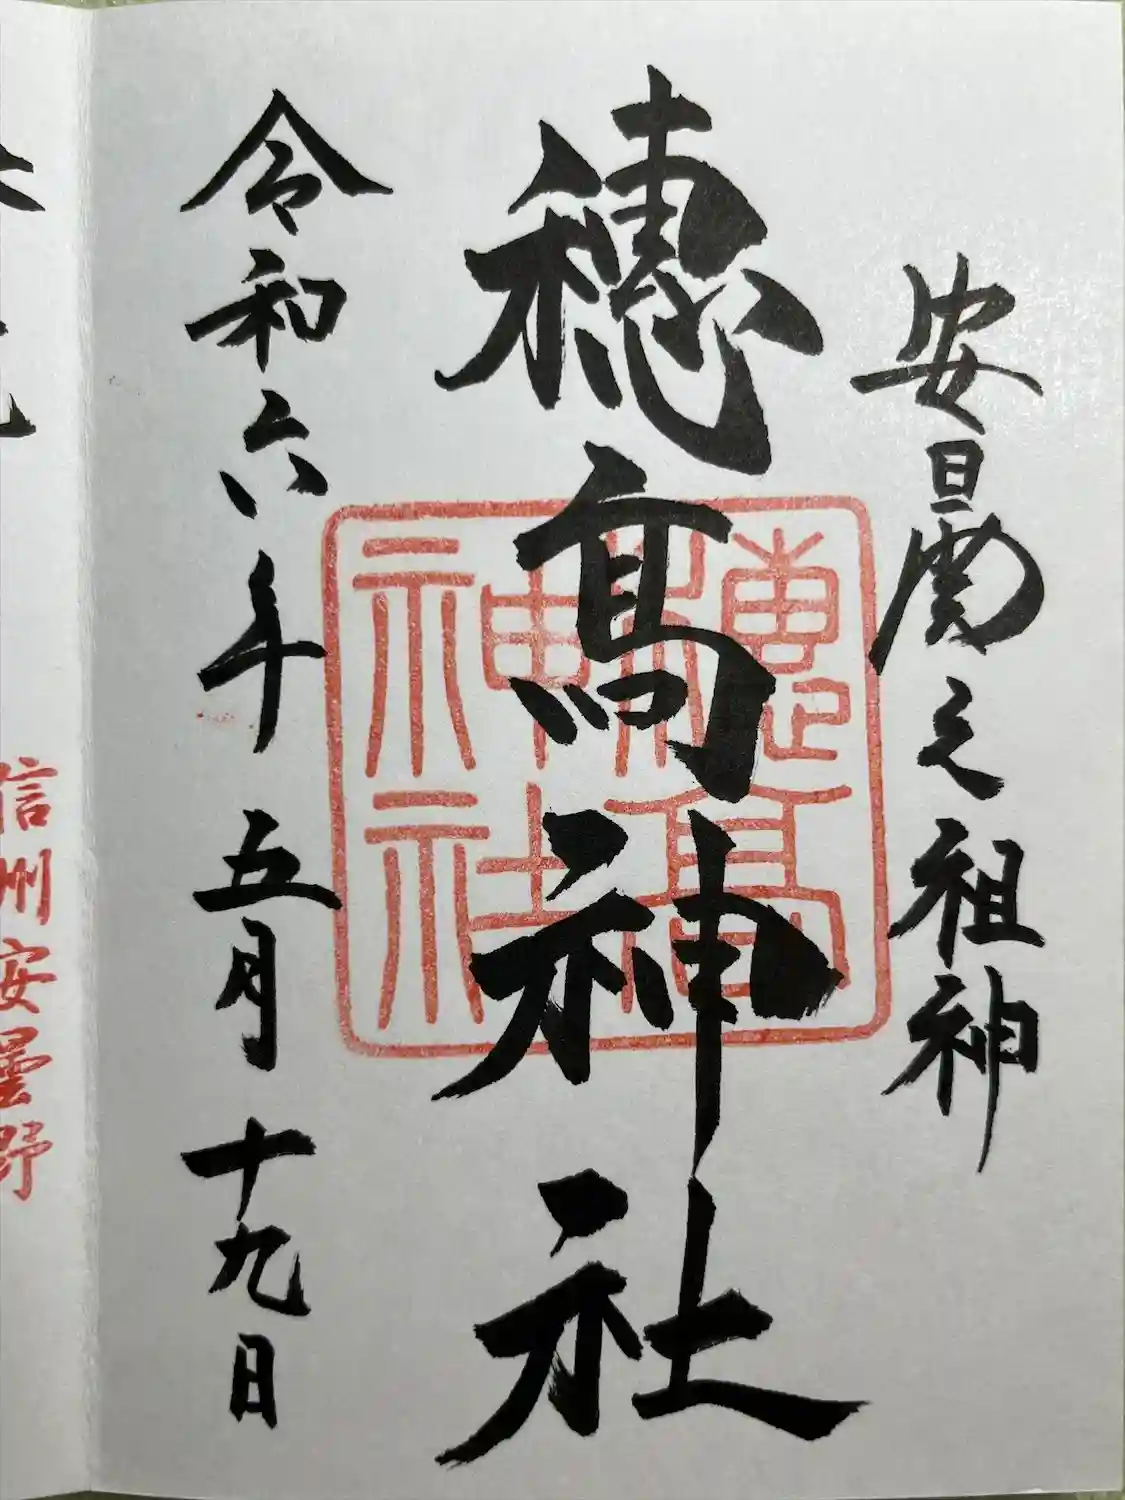 安曇之祖神
穂髙神社
穂高神社
令和六年 五月 十九日
信州安曇野